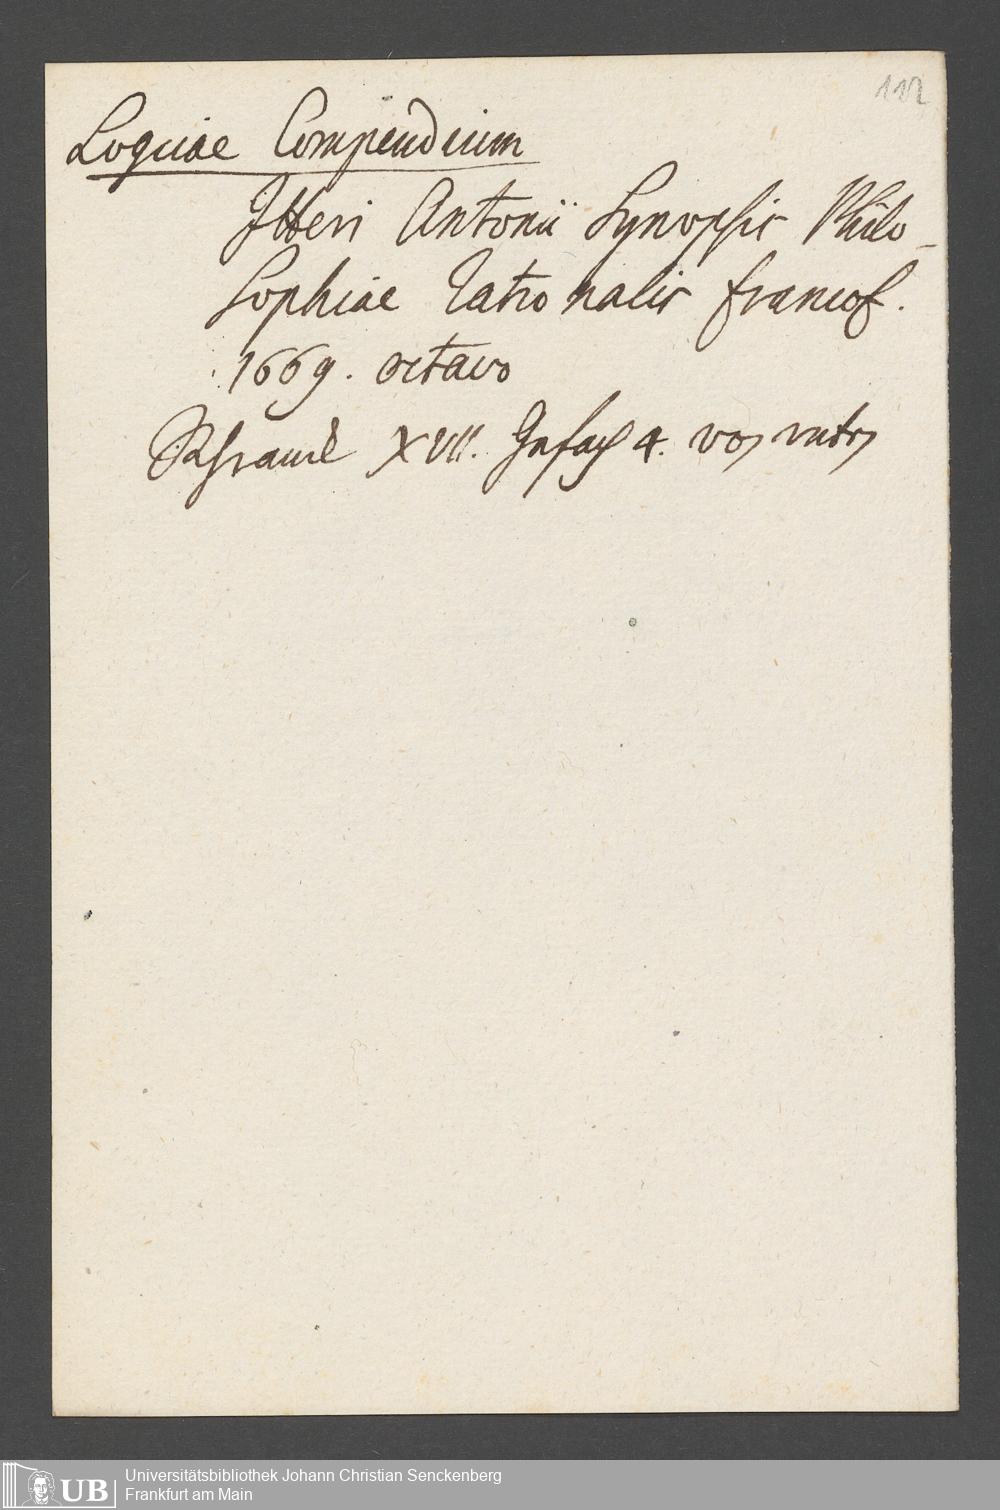 112
Logicae Compendium
Itteri Antonii Synopsis Philo-
sophiae rationalis francof.
1669. octavo
Schranck XVII. Gefach 4. von unten
Universitätsbibliothek Johann Christian Senckenberg
UB Frankfurt am Main